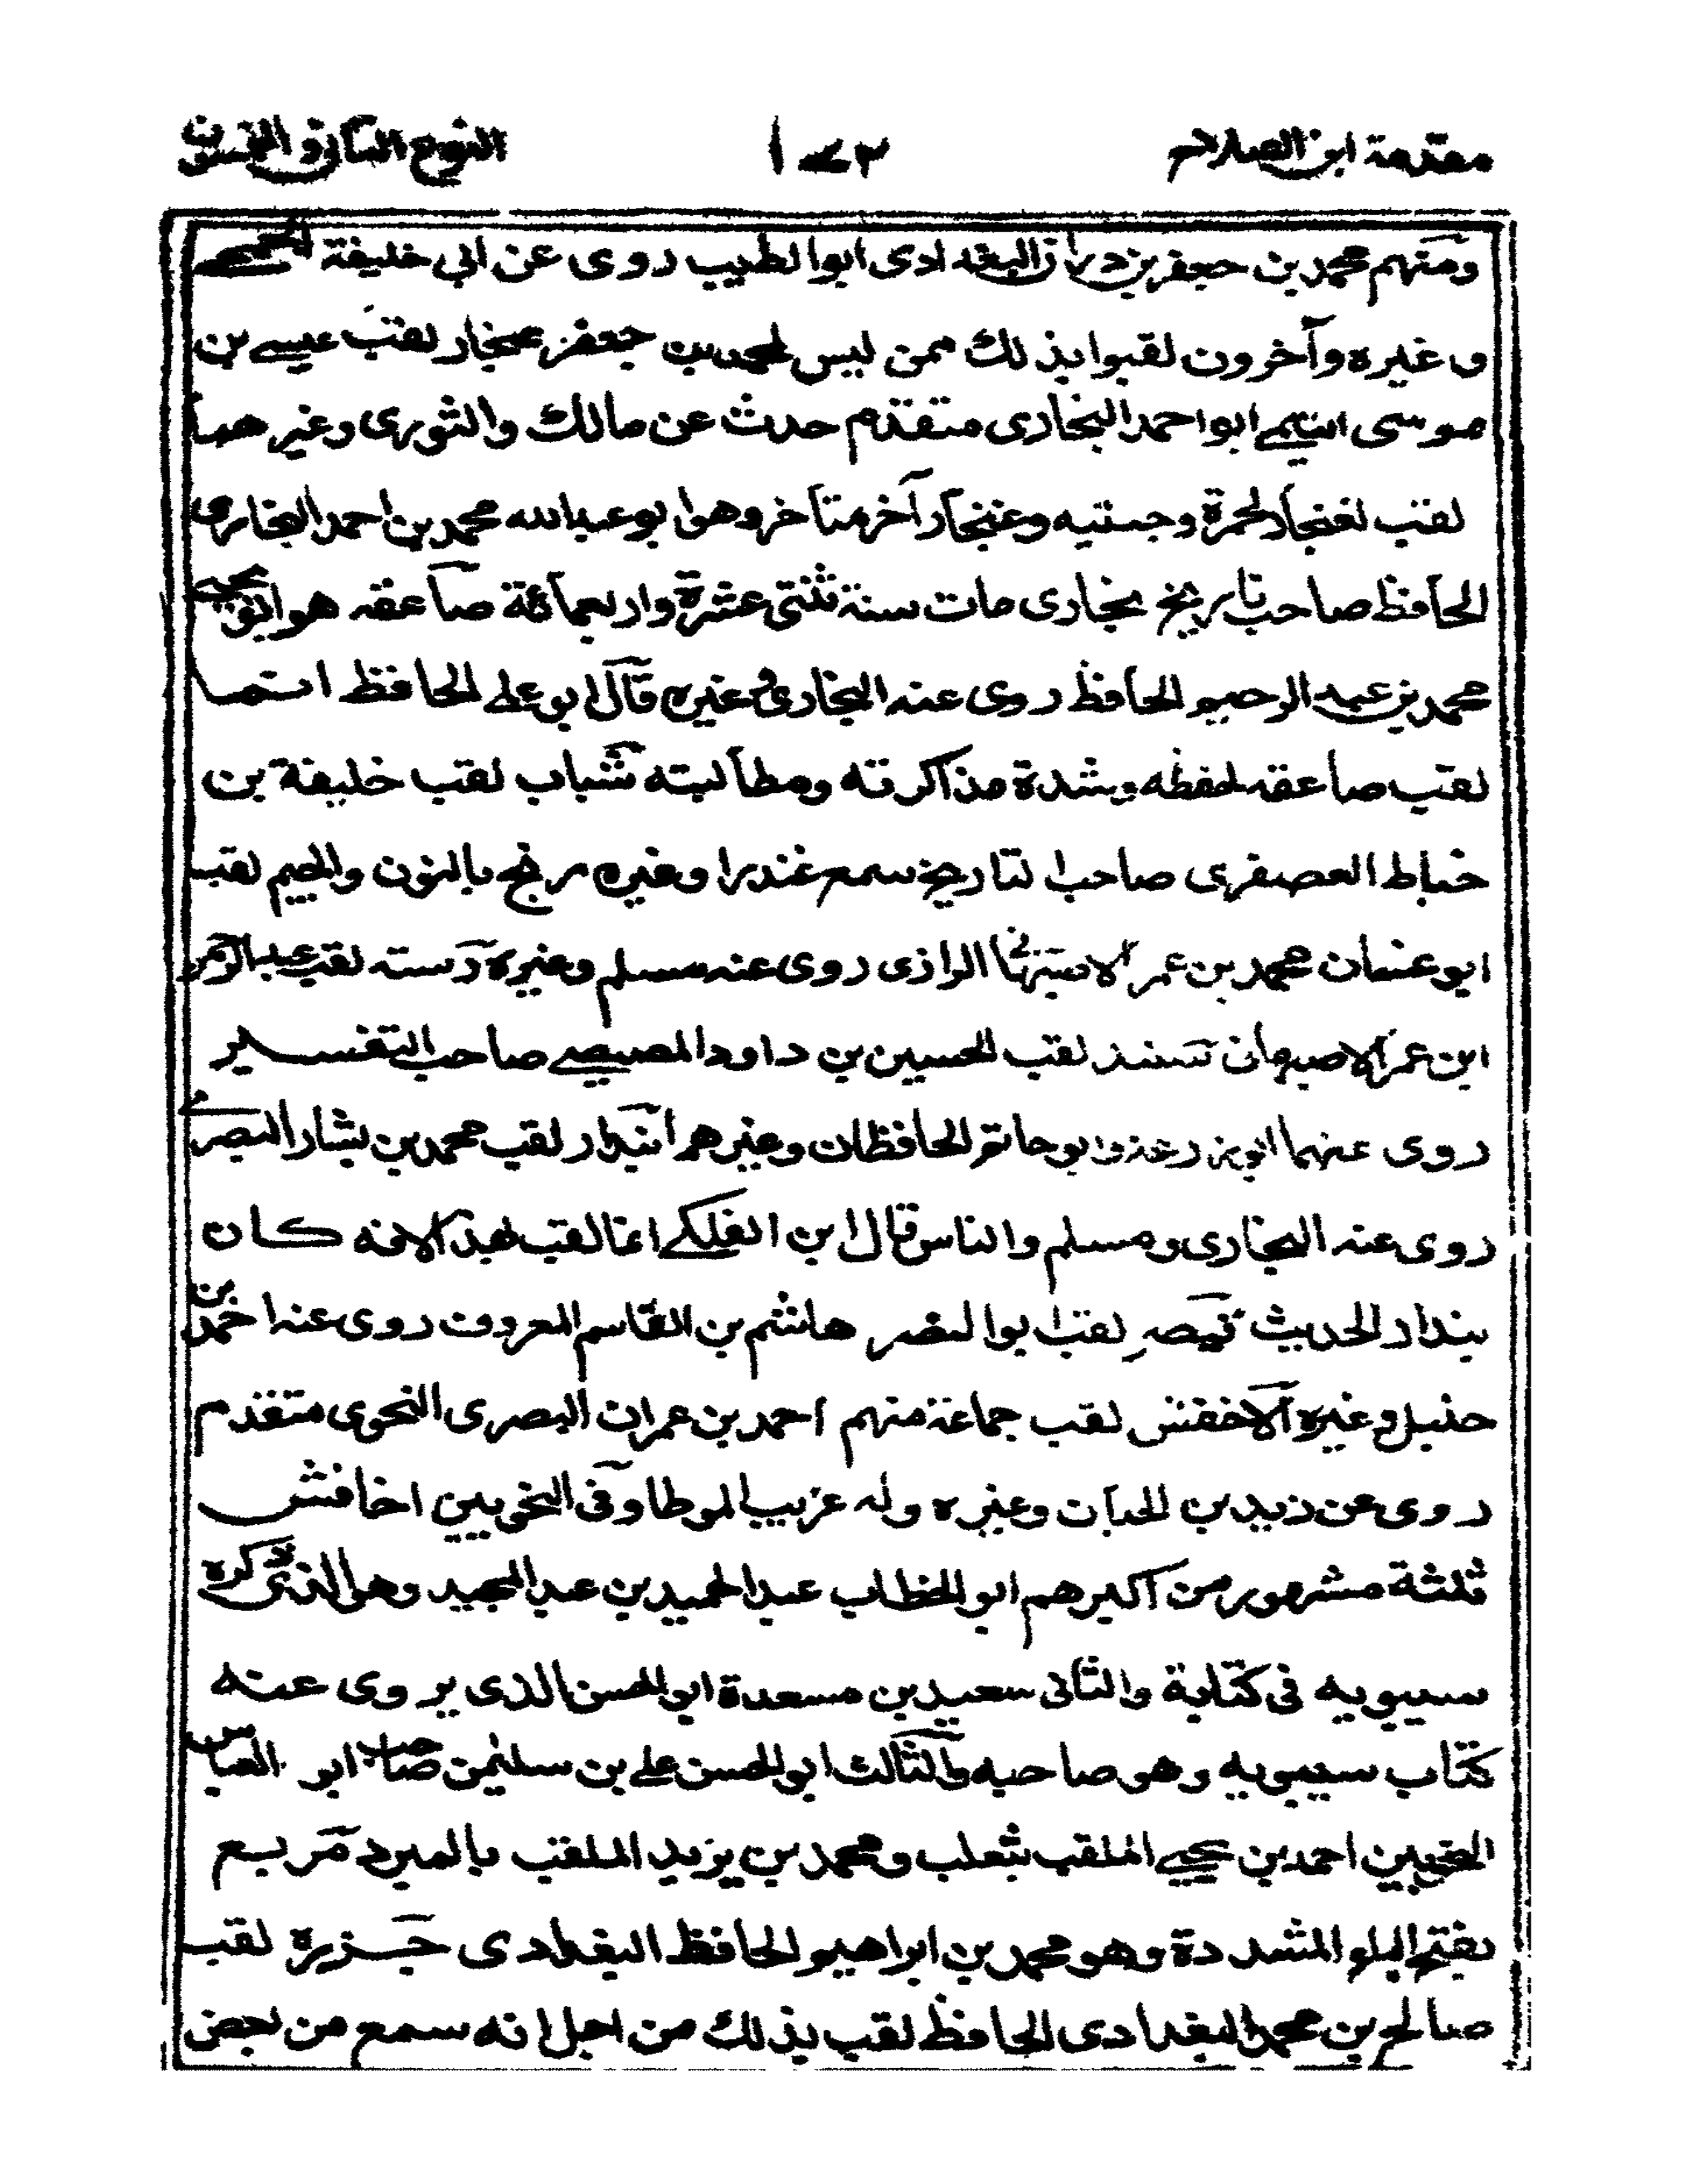 مقدمة ابن الصلاح ١٧٣ النوع الثانى والخمسون
ومنهم محمد بن جعفر بن دران البغدادى ابوا لطيب روى عن ابي خليفة الجمحے
و غيره وآخرون لقبوا بذلك ممن ليس لمحمد بن جعفر غنجار لقب عيسے بن
موسى التيمے ابو احمد البخارى متقدم حدث عن مالك والثورى وغيرهما
لقب لغنجار لحمرة وجنتيه وغنجار آخر متأخر وهوا بو عبدالله محمد بن احمد البخارى
الحافظ صاحب تاريخ بخارى مات سنة ثنتى عشرة واربعمائة صاعقه هو ابو يحيے
محمد بن عبد الرحيم الحافظ روى عنه البخارى وغيره قال ابو علے الحافظ انما
لقب صاعقه لحفظه وشدة مذاكرته ومطالبته شباب لقب خليفة بن
خياط العصفرى صاحب التاريخ سمع غندرا وغيره زنج بالنون والجيم لقب
ابو غسان محمد بن عمر الاصبهانى الرازى روى عنه مسلم وغيره رسته لقب عبدالرحمن
ابن عمر الاصبهانى سنيد لقب الحسين بن داود المصيصے صاحب التفسير
روى عنهما ابو زرعة وابو حاتم الحافظان وغيرهما بندار لقب محمد بن بشار البصرے
روى عنه البخارى ومسلم والناس قال ابن الفلكے انما لقب لهذا لانه كان
بندار الحديث قيصر لقب ابوا لنضر هاشم بن القاسم المعروف روى عنه احمد بن
حنبل وغيره الاخفش لقب جماعة منهم احمد بن عمران البصرى النحوى متقدم
روى عن زيد بن الحباب وغيره وله غريب الموطا وفى النحويين اخافش
ثلثة مشهورمن اكبرهم ابو الخطاب عبد الحميد بن عبد المجيد وهو الذى ذكره
سيبويه فى كتابة والثانى سعيد بن مسعدة ابو الحسن الذى يروى عنه
كتاب سيبويه وهو صاحبه والثالث ابو الحسن علے بن سليمن صاحب ابو العباس
النحويين احمد بن يحيے الملقب بثعلب ومحمد بن يزيد الملقب بالمبرد مربع
بفتح الباء المشددة وهو محمد بن ابراهيم الحافظ البغدادى جزرة لقب
صالح بن محمد البغدادى الحافظ لقب بذلك من اجل انه سمع من بعض